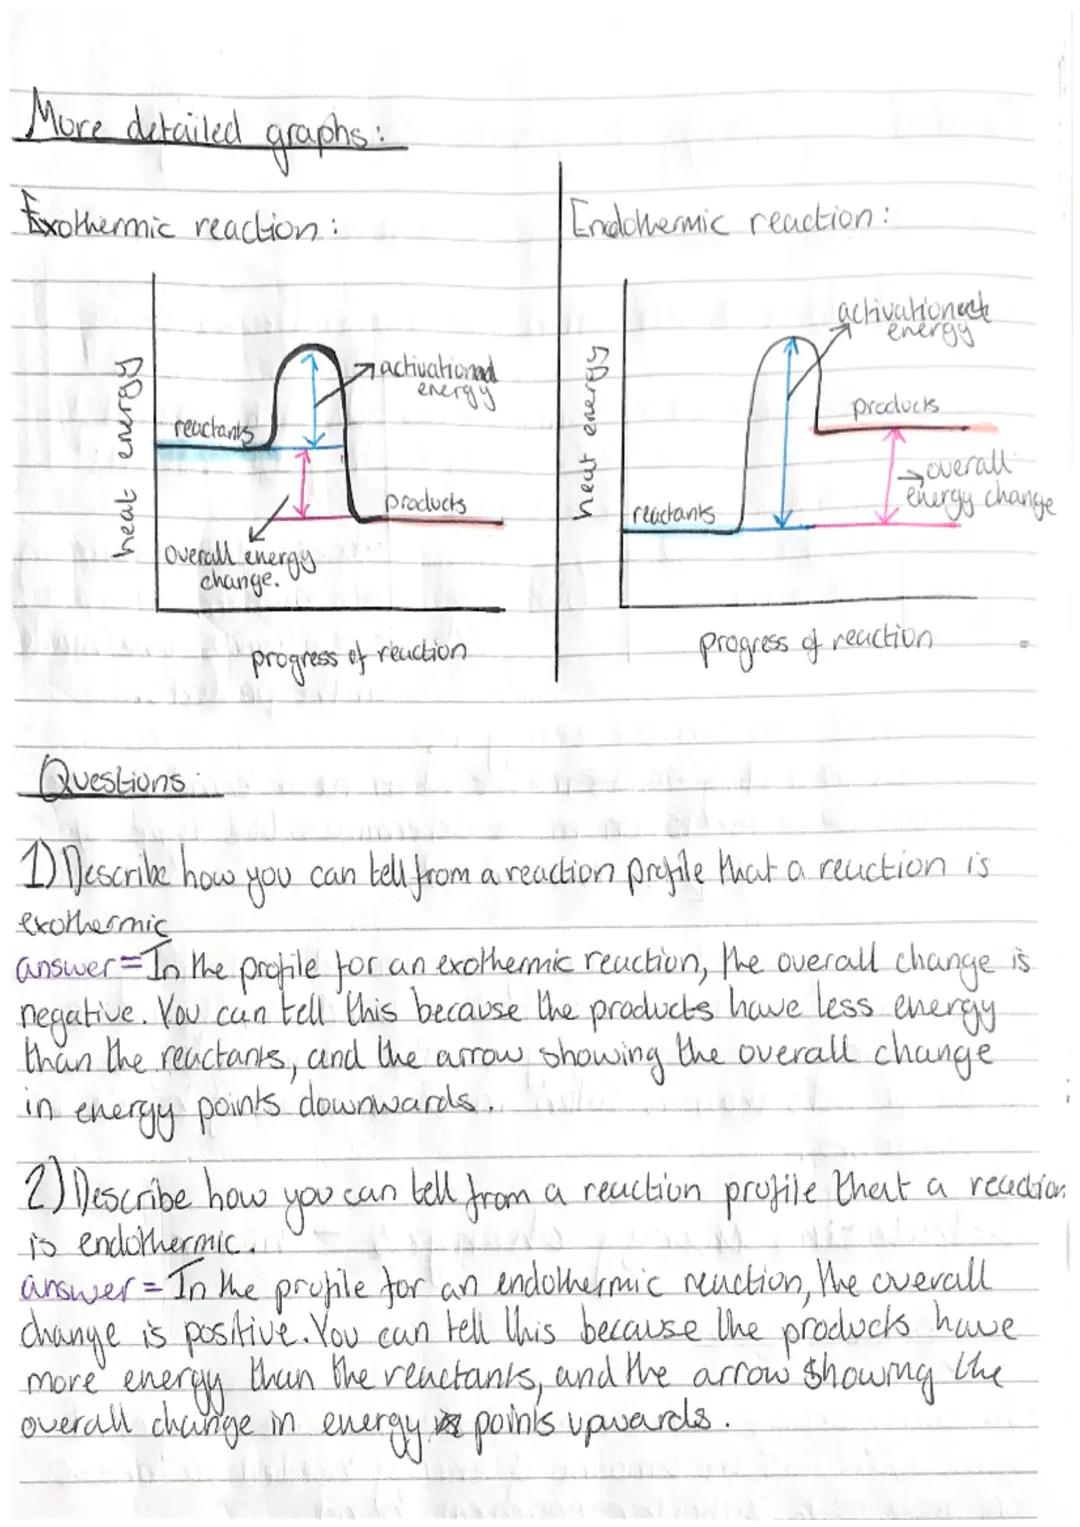 More detailed graphs:
Exothermic reaction:
heat energy
reactants
activation
energy
products
overall energy
change.
progress of reaction
Endothermic reaction:
heat energy
activation
energy
products
overall
energy change
reactants
progress of reaction
Questions:
1) Describe how you can tell from a reaction profile that a reaction is
exothermic
answer = In the profile for an exothermic reaction, the overall change is
negative. You can tell this because the products have less energy
than the reactants, and the arrow showing the overall change
in energy points downwards.
2) Describe how you can tell from a reaction profile that a reaction
is endothermic.
answer = In the profile for an endothermic reaction, the overall
change is positive. You can tell this because the products have
more energy than the reactants, and the arrow showing the
overall change in energy points upwards.